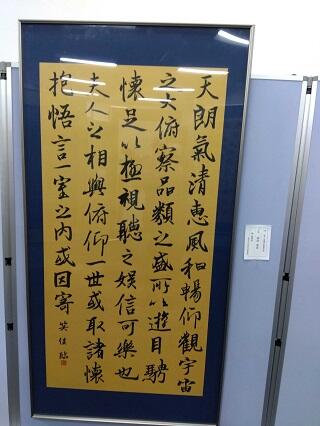 天朗氣清惠風和暢仰觀宇宙
之大俯察品類之盛所以遊目騁
懷足以極視聽之娛信可樂也
夫人之相與俯仰一世或取諸懷
抱悟言一室之內或因寄
英佳臨